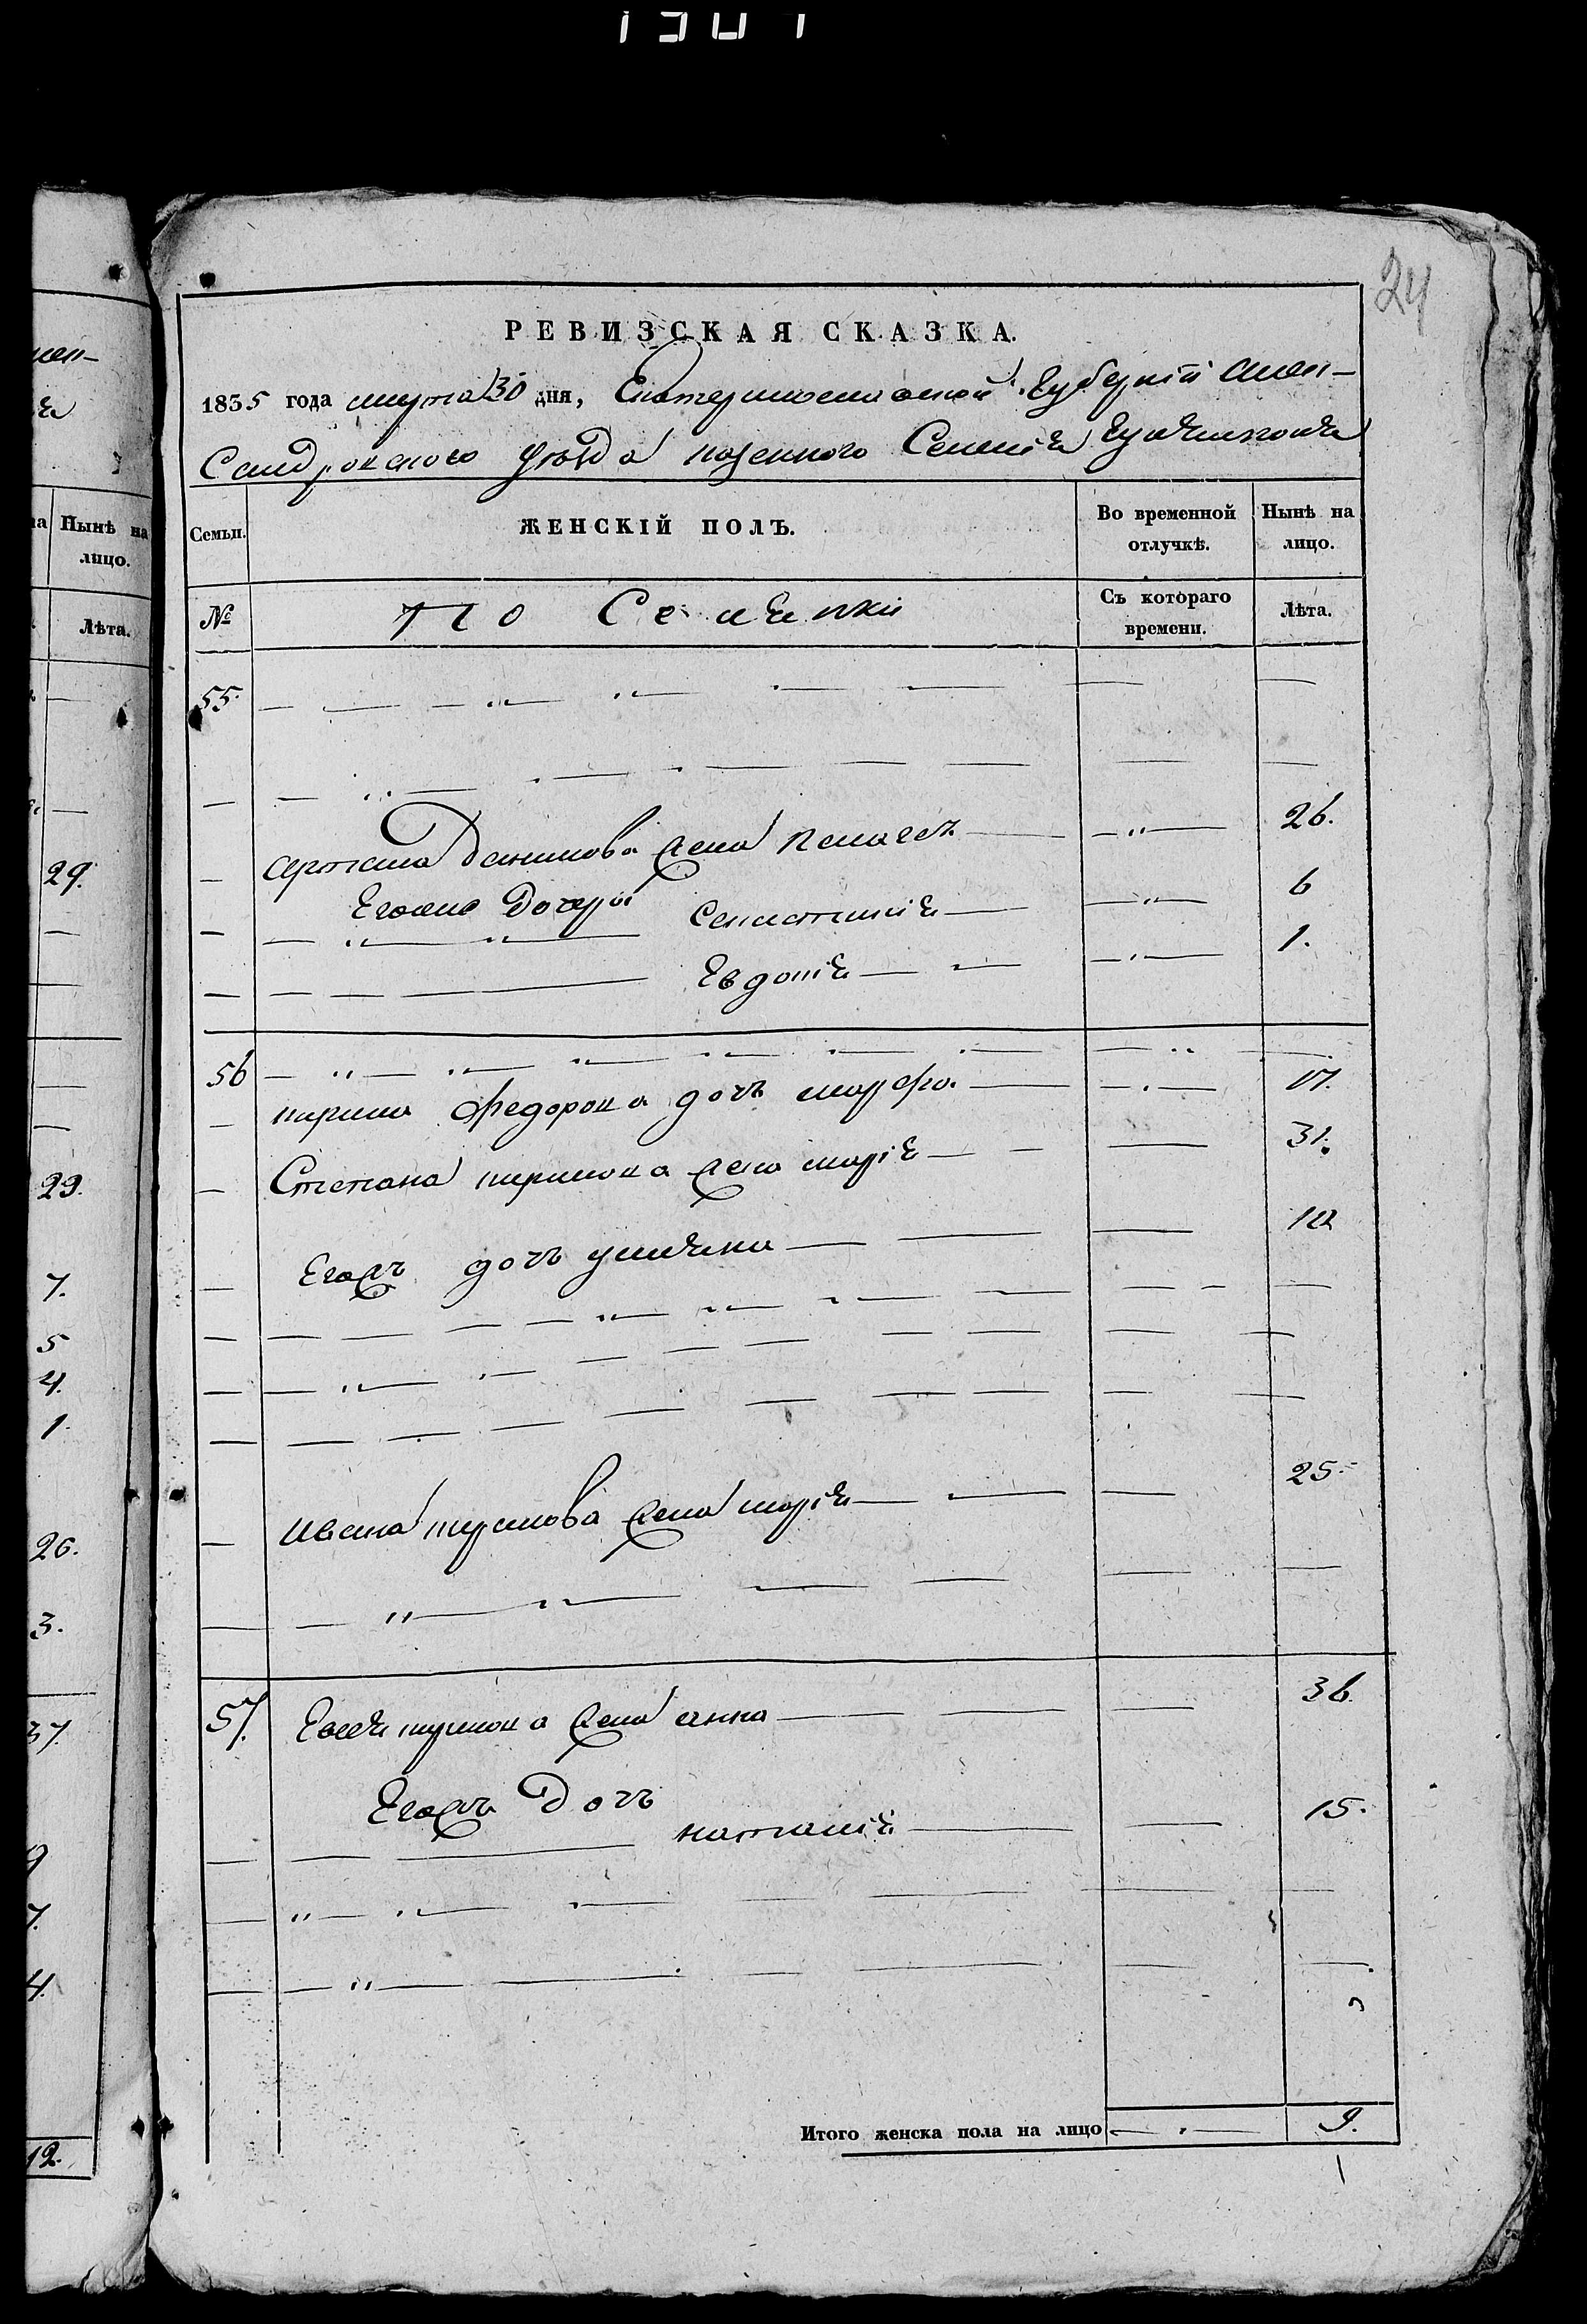 24
РЕВИЗСКАЯ СКАЗКА.
1835 года марта 30 дня, Екатеринославской Губерніи Алек-
сандровского уезда казенного Селенія
Семьи. ЖЕНСКІЙ ПОЛЪ. Во временной отлучкѣ. Нынѣ на лицо.
№ Съ котораго времени. Лѣта.
55.
Артема Данилова жена Пелагея 26.
Егоже дочери Анастасия 6
Евдокия 1.
56
Кирила Федорова дочь Марфа 17.
Степана Кирилова жена Мария 31.
Егожъ дочь Ульяна 10
Ивана Кирилова жена Мария 25.
57. Кирилова жена Анна 36.
Егожъ Дочь
Наталия 15.
Итого женска пола на лицо 9.
Нынѣ на
лицо.
Лѣта.
29.
29.
7.
5
4.
1.
26.
3.
37.
7.
4.
12.